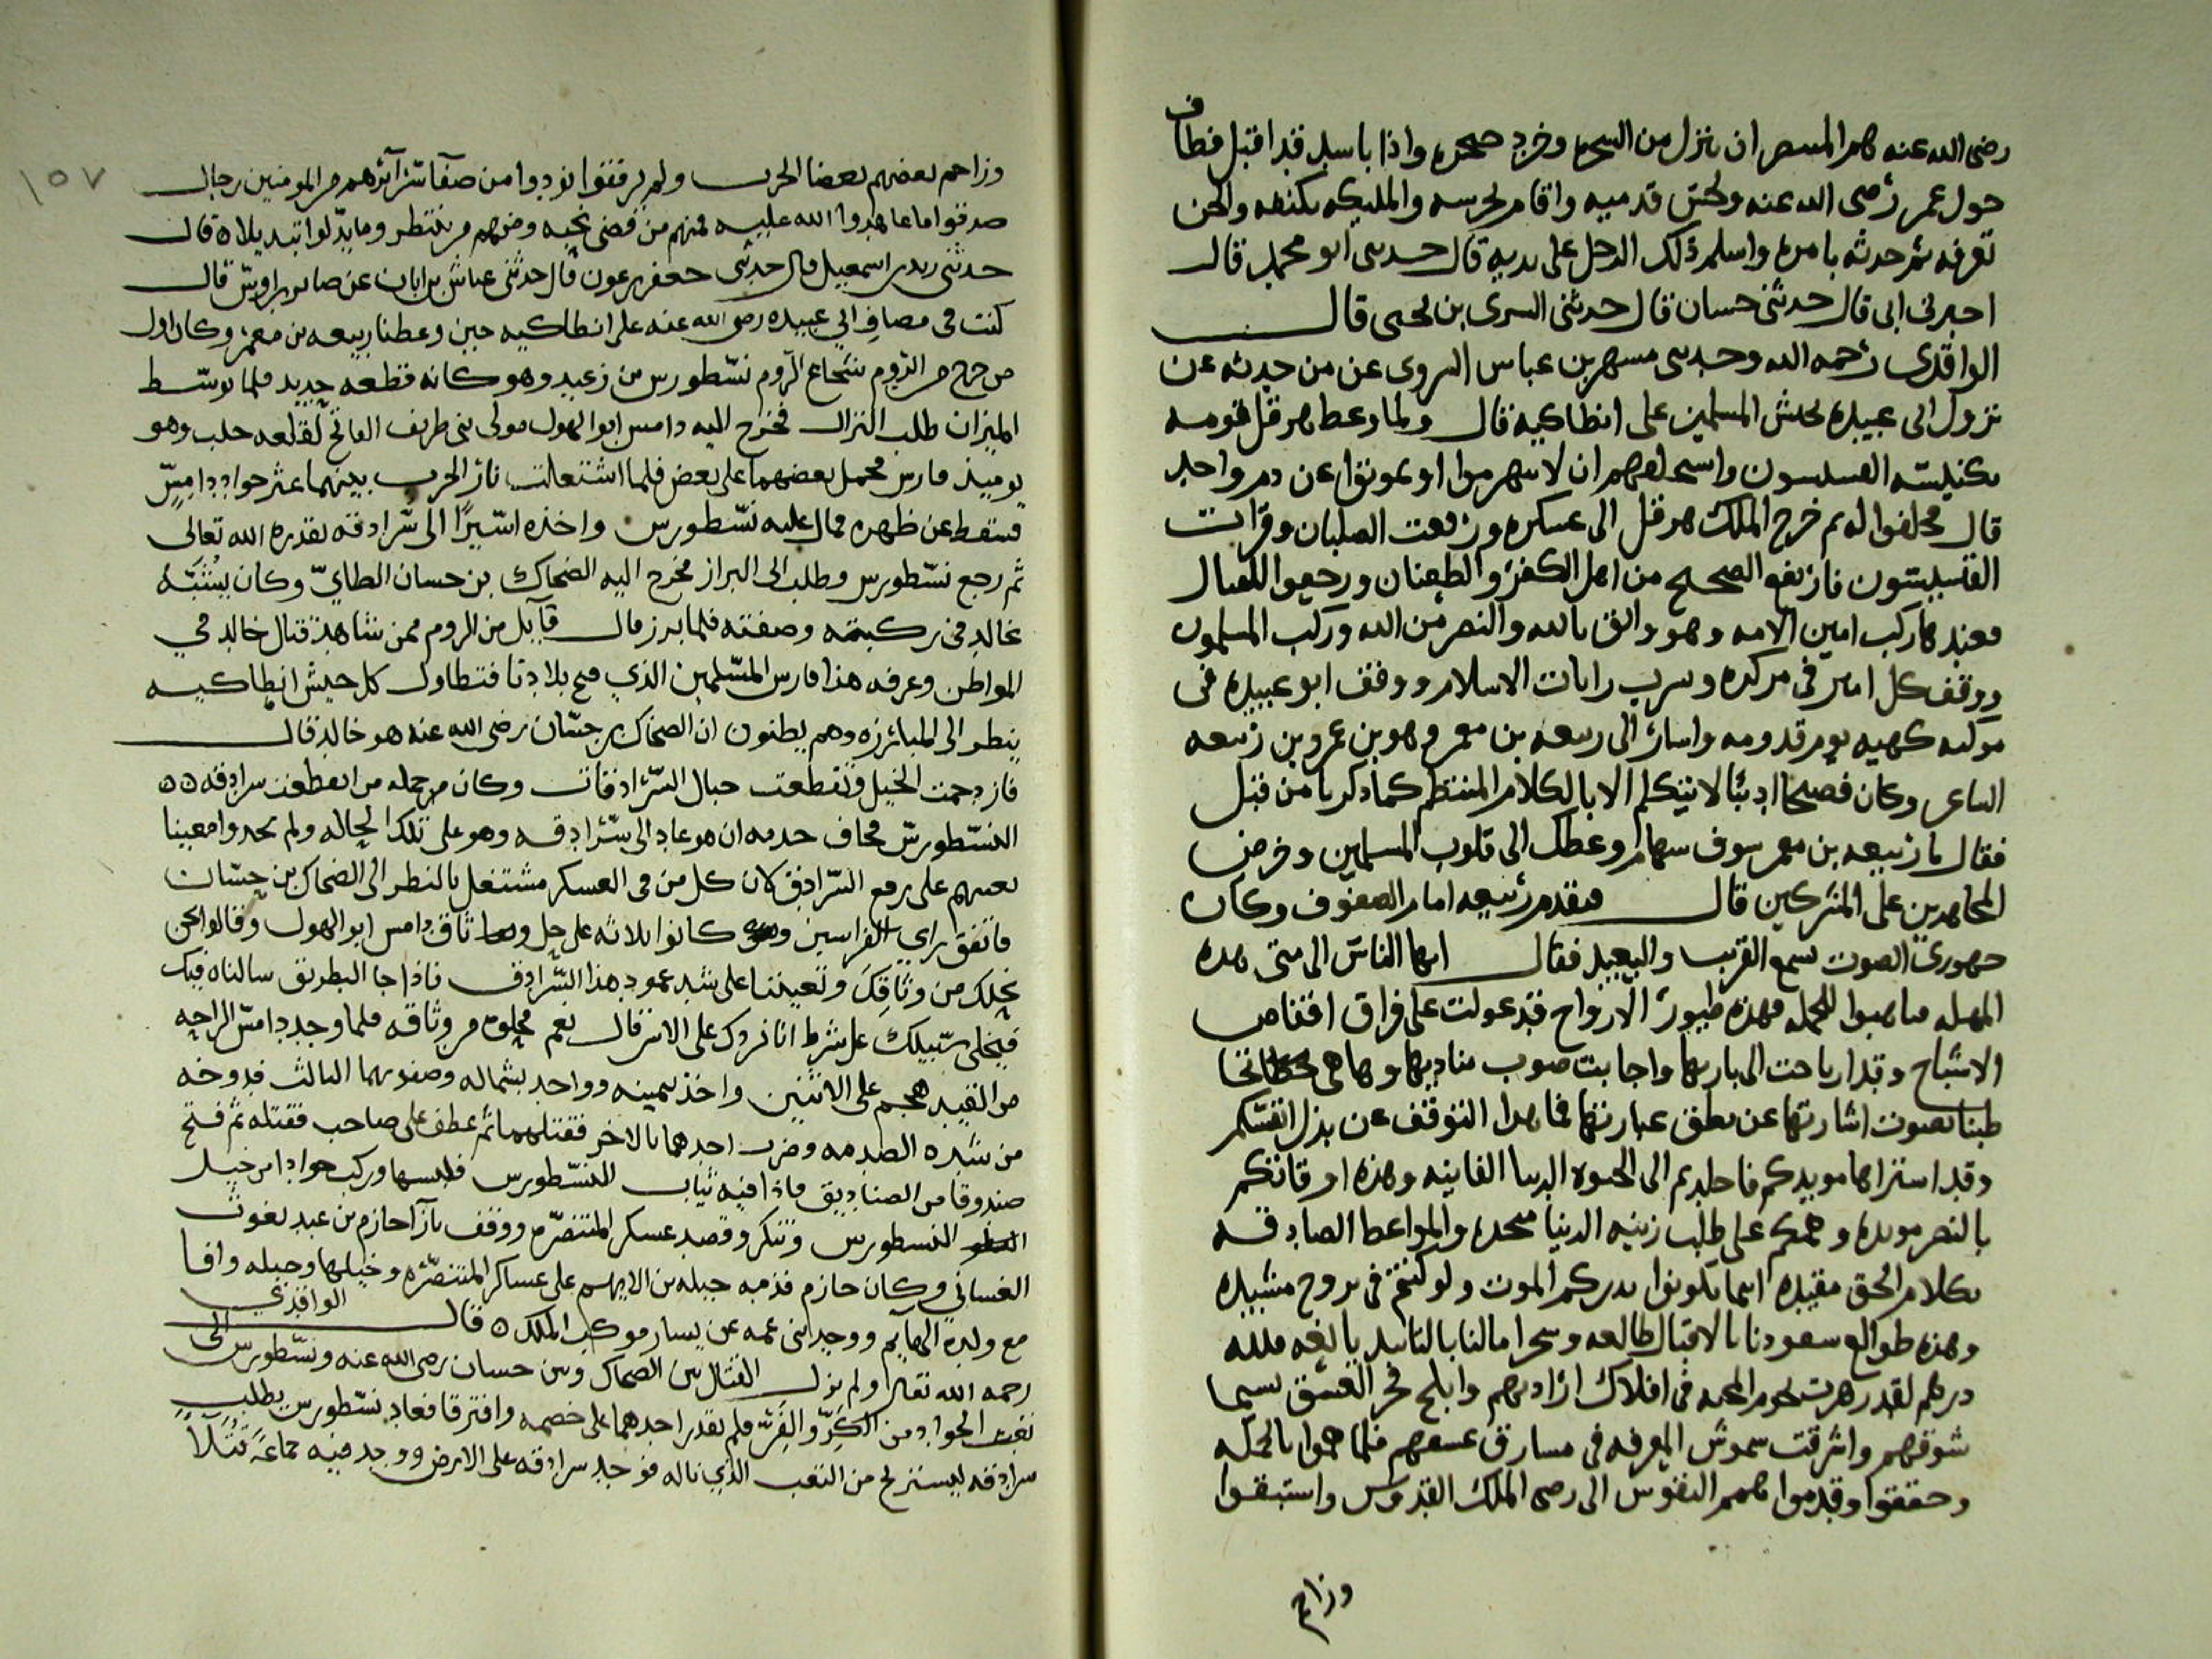 رضى الله عنه هم المتنصر ان ينزل من الشجرة وخرج صحيحه واذا باسد قد اقبل فطاف
حول عمر رضى الله عنه ولحس قدميه واقام لحرسه والمليكه تكنفه والجن
تعرفه ثم حدثه بامره واسلم ذلك الرجل على يديه قال حدثنى ابو محمد قال
اخبرنى ابى قال حدثنى حسان قال حدثنى السرى بن يحيى قال
الواقدى رحمه الله وحدثنى مسهر بن عباس المروى عن من حدثه عن
نزول ابى عبيده بجيش المسلمين على انطاكيه قال ولما وعظ هرقل قومه
بكنيسه القسيسون واستحلفهم ان لا ينهزموا او يموتوا عن دم واحد
قال فحلفوا له ثم خرج الملك هرقل الى عسكره ورفعت الصلبان وقرات
القسيسون فارتفع الصجيج من اهل الكفر والطغيان ورجعوا للقتال
فعندها ركب امين الامه وهو واثق بالله والنصر من الله وركب المسلمون
ووقف كل امير فى مركزه وسرت رايات الاسلام ووقف ابو عبيده فى
موكبه كهيه يوم قدومه واشار الى ربيعه بن معمر وهو بن عمرو بن ربيعه
الشاعر وكان فصيحا اديبا لا يتكلم الا بالكلام المنتظم كما ذكرنا من قبل
فقال يا ربيعه بن معمر سوف سهام وعظك الى قلوب المسلمين وحرض
المجاهدين على المشركين قال فتقدم ربيعه امام الصفوف وكان
جهورى الصوت يسمع القريب والبعيد فقال ايها الناس الى متى هذه
المهله فتاهبوا للحمله فهذه طيور الارواح قد عولت على فراق اقفاص
الاشباح وقد ارتاحت الى باريها واجابت صوب مناديها وها هى تخاطبنا
طبنا بصوت اشارتها عن نطق عبارتها فما هذا التوقف عن بذل انفسكم
وقد اشتراها مويدكم فاخلدتم الى الحيوه الدنيا الفانيه وهذه اوقاتكم
بالنصر مويده وهمكم على طلب زينه الدنيا متجده والمواعظ الصادقه
بكلام الحق مقيده اينما تكونوا يدرككم الموت ولو كنتم فى بروج مشيده
وهذه طوالع سعودنا بالاقبال طالعه وسحرا مالنا بالتاييد يانعه فلله
درهم لقد زهرت نجوم المحبه فى افلاك ارادتهم وابلج فجر العشق بسيما
شوقهم واشرقت شموس المعرفه فى مشارق عشقهم فلما هموا بالحمله
وحققوا وقدموا همم النفوس الى رضى الملك القدوس واستبقوا
وزاحم
١٥٧
وزاحم بعضهم بعضا الحرب ولم يرفقوا نودوا من صفا سرائرهم من المومنين رجال
صدقوا ما عاهدوا الله عليه فمنهم من قضى نحبه ومنهم من ينتظر وما بدلوا تبديلا ٥ قال
حدثنى زيد بن اسمعيل قال حدثنى جعفر بن عون قال حدثنى عباس بن ابان عن صابر بن اويس قال
كنت فى مصاف ابي عبيده رضى الله عنه على انطاكيه حين وعظنا ربيعه بن معمر وكان اول
من خرج من الروم شجاع الروم نسطورس من زعبيد وهو كانه قطعه حديد فلما توسط
الميزان طلب النزال فخرج اليه دامس ابو الهول مولى بنى طريف الفاتح لقلعه حلب وهو
يوميذ فارس فحمل بعضهما على بعض فلما اشتعلت نار الحرب بينهما عثر جواد دامس
فسقط عن ظهره فمال عليه نسطورس واخذه اسيرا الى سرادقه بقدره الله تعالى
ثم رجع نسطورس وطلب الى البراز فخرج اليه الضحاك بن حسان الطاي وكان يشبه
خالد فى ركبته وصفته فلما برز قال قايل من الروم ممن شاهد قتال خالد في
المواطن وعرفه هذا فارس المسلمين الذي فتح بلادنا فتطاول كل جيش انطاكيه
ينظر الى المبارزه وهم يظنون ان الضحاك بن حسان رضى الله عنه هو خالد قال
فازدحمت الخيل وتقطعت حبال السرادقات وكان من جمله من انقطعت سرادقه ٥٥
النسطورس فخاف خدمه ان هو عاد الى سرادقه وهو على تلك الحاله ولم يجدوا معينا
يعينهم على رفع السرادق لان كل من فى العسكر مشتغل بالنظر الى الضحاك بن حسان
فاتفق راي الفراسين وكانوا ثلاثه على حل وثاق دامس ابو الهول وقالوا نحن
نحلك من وثاقك وتعيننا على شد عمود هذا السرادق فاذا جا البطريق سالناه فيك
فيخلى سبيلك على شرط انا نردك على الاسر قال نعم فحلوه من وثاقه فلما وجد دامس الراحه
من القيد هجم على الاثنين واخذ بيمينه وواحد بشماله وصفو بهما الثالث فدوخه
من شده الصدمه وضرب احدهما بالاخر فقتلهما ثم عطف على صاحب فقتله ثم فتح
صندوقا من الصناديق فاذا فيه ثياب النسطورس فلبسها وركب جوادا من خيل
النسطورس وتنكر وقصد عسكر المتنصره ووقف بازا حازم بن عبد يغوث
الغساني وكان حازم قدمه جبله بن الايهم على عساكر المتنصره وخيلها وجبله وافا
مع ولده الهايم ووجد ابنى عمه عن يسار موكب الملك ٥ قال الواقدي
رحمه الله تعالى ولم يزل القتال بين الضحاك وبين حسان رضى الله عنه ونسطورس الى
تعب الجواد من الكر والفر فلم يقدر احدهما على خصمه وافترقا فعاد نسطورس يطلب
سرادقه ليستريح من التعب الذي ناله فوجد سرادقه على الارض ووجد فيه جماعه قتلا